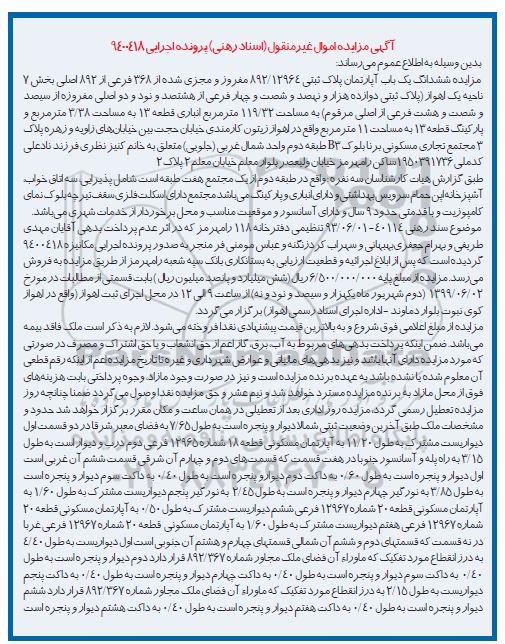 آگهی مزایده اموال غیر منقول (اسناد رهنی) پرونده اجرایی ۹۴۰۰۴۱۸
بدین وسیله به اطلاع عموم می‌رساند:
مزایده ششدانگ یک باب آپارتمان پلاک ثبتی ۸۹۲/۱۲۹۶۴ مفروز و مجزی شده از ۳۶۸ فرعی از ۸۹۲ اصلی بخش ۷
ناحیه یک اهواز (پلاک ثبتی دوازده هزار و نهصد و شصت و چهار فرعی از هشتصد و نود و دو اصلی مفروزه از سیصد
و شصت و هشت فرعی از اصلی مرقوم) به مساحت ۱۱۹/۳۲ مترمربع انباری قطعه ۱۳ به مساحت ۳/۳۸ مترمربع و
پارکینگ قطعه ۱۳ به مساحت ۱۱ مترمربع واقع در اهواز زیتون کارمندی خیابان حجت بین خیابان‌های زاویه و زهره پلاک
۳ مجتمع تجاری مسکونی برنا بلوک B۳ طبقه دوم واحد شمال غربی (جلویی) متعلق به خانم کنیز نظری فرزند نادعلی
کدملی ۱۹۵۰۳۹۱۷۳۶ ساکن رامهرمز خیابان ولیعصر بلوار معلم خیابان معلم ۲ پلاک ۲
طبق گزارش هیات کارشناسان سه نفره: واقع در طبقه دوم از یک مجتمع هفت طبقه است شامل پذیرایی، سه اتاق خواب،
آشپزخانه این حمام سرویس بهداشتی و دارای انباری و پارکینگ می‌باشد مجتمع دارای اسکلت فلزی سقف تیرچه بلوک نمای
کامپوزیت و با قدمتی حدود ۹ سال و دارای آسانسور و موقعیت مناسب و محل برخوردار از خدمات شهری می‌باشد.
موضوع سند رهنی ۴۰۱۱۴-۹۳/۰۶/۰۱ تنظیمی دفترخانه ۱۱۸ رامهرمز که در اثر عدم پرداخت بدهی آقایان مهدی
ظریفی و بهرام جعفری بهبهانی و سهراب کردزنگنه و عباس مومنی فر منجر به صدور پرونده اجرایی مکانیزه ۹۴۰۰۴۱۸
گردیده است که پس از ابلاغ اجرائیه و قطعیت ارزیابی به بستانکاری بانک سپه شعبه رامهرمز از طریق مزایده به فروش
می‌رسد. مزایده از مبلغ پایه ۶/۵۰۰/۰۰۰/۰۰۰ ریال (شش میلیارد و پانصد میلیون ریال) بابت قسمتی از مطالبات در مورخ
۱۳۹۹/۰۶/۰۲ (دوم شهریور ماه یکهزار و سیصد و نود و نه) از ساعت ۹ الی ۱۲ در محل اجرای ثبت اهواز (واقع در اهواز
کوی نبوت بلوار دماوند - اداره اجرای اسناد رسمی اهواز) برگزار می‌گردد.
مزایده از مبلغ اعلامی فوق شروع و به بالاترین قیمت پیشنهادی نقدا فروخته می‌شود. لازم به ذکر است ملک فاقد بیمه
می‌باشد. ضمن اینکه پرداخت بدهی‌های مربوط به آب، برق، گاز اعم از حق انشعاب و یا حق اشتراک و مصرف در صورتی
که مورد مزایده دارای آنها باشد و نیز بدهی‌های مالیاتی و عوارض شهرداری و غیره تا تاریخ مزایده اعم از اینکه رقم قطعی
آن معلوم شده یا نشده باشد به عهده برنده مزایده است و نیز در صورت وجود مازاد، وجوه پرداختی بابت هزینه‌های
فوق از محل مازاد به برنده مزایده مسترد خواهد شد و نیم عشر و حق مزایده نقدا وصول می‌گردد ضمنا چنانچه روز
مزایده تعطیل رسمی گردد، مزایده روز اداری بعد از تعطیلی در همان ساعت و مکان مقرر برگزار خواهد شد حدود و
مشخصات ملک طبق آخرین وضعیت ثبتی شمالا دیوار و پنجره است به طول ۷/۶۵ به فضای معبر شرقا در دو قسمت اول
دیواریست مشترک به طول ۱۱/۲۰ به آپارتمان مسکونی قطعه ۱۸ شماره ۱۲۹۶۵ فرعی دوم درب و دیوار است به طول
۳/۱۵ به راه پله و آسانسور جنوبا در هفت قسمت که قسمت‌های دوم و چهارم آن شرقی قسمت ششم آن غربی است
اول دیوار و پنجره است به طول ۰/۶۰ به داکت دوم دیوار و پنجره است به طول ۰/۴۰ به داکت سوم دیوار و پنجره است
به طول ۳/۸۵ به نورگیر چهارم دیوار و پنجره است به طول ۲/۴۵ به نورگیر پنجم دیواریست مشترک به طول ۱/۶۰ به
آپارتمان مسکونی قطعه ۲۰ شماره ۱۲۹۶۷ فرعی ششم دیواریست مشترک به طول ۰/۵۰ به آپارتمان مسکونی قطعه ۲۰
شماره ۱۲۹۶۷ فرعی هفتم دیواریست مشترک به طول ۱/۶۰ به آپارتمان مسکونی قطعه ۲۰ شماره ۱۲۹۶۷ فرعی غربا
در نه قسمت که قسمتهای دوم و ششم آن شمالی قسمتهای چهارم و هشتم آن جنوبی است اول دیواریست به طول ۴/۴۰
به درز انقطاع مورد تفکیک که ماوراء آن فضای ملک مجاور شماره ۸۹۲/۳۶۷ قرار دارد دوم دیوار و پنجره است به طول
۰/۴۰ به داکت سوم دیوار و پنجره است به طول ۰/۴۰ به داکت چهارم دیوار و پنجره است به طول ۰/۴۰ به داکت پنجم
دیواریست به طول ۲/۱۵ به درز انقطاع مورد تفکیک که ماوراء آن فضای ملک مجاور شماره ۸۹۲/۳۶۷ قرار دارد ششم
دیوار و پنجره است به طول ۰/۴۰ به داکت هفتم دیوار و پنجره است به طول ۰/۴۰ به داکت هشتم دیوار و پنجره است